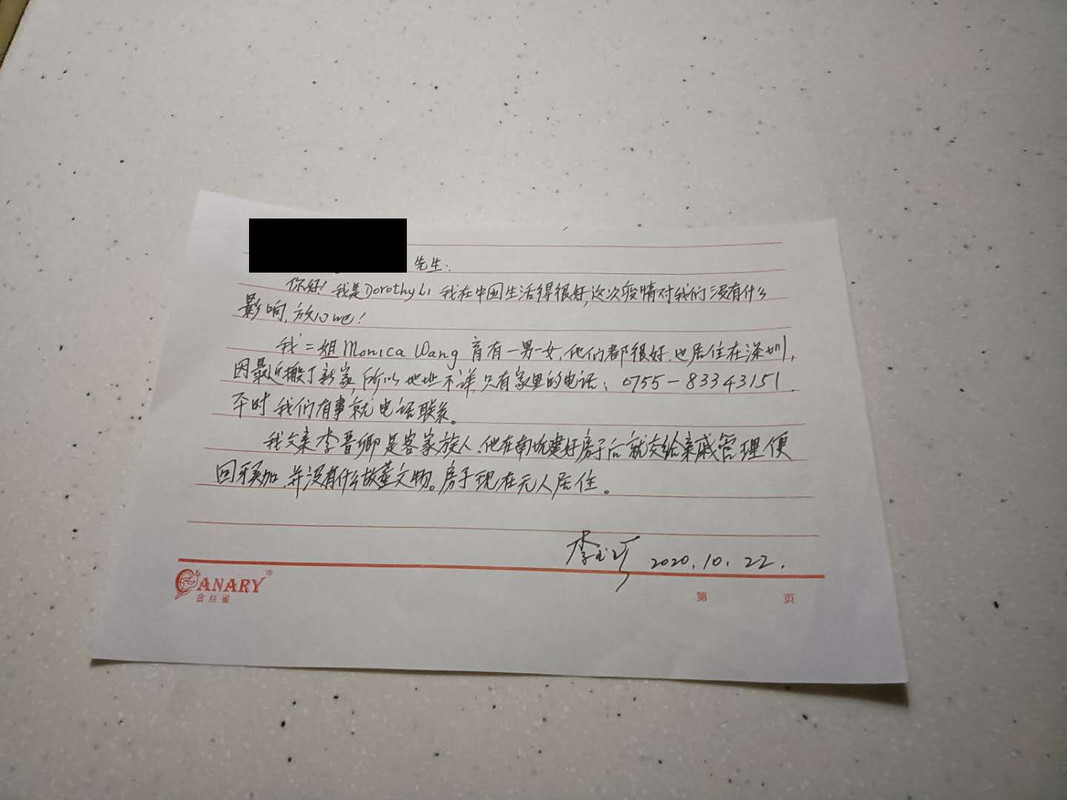 先生:
你好! 我是Dorothy Li 我在中国生活得很好,这次疫情对我们没有什么
影响,放心吧!
我二姐Monica Wang 育有一男一女,他们都很好,也居住在深圳,
因最近搬了新家,所以地址不详,只有家里的电话: 0755-83343151.
平时我们有事就电话联系。
我父亲李晋卿是客家族人,他在南坑建好房子后就交给亲戚管理便
回牙买加,并没有什么故董文物。房子现在无人居住。
2020.10.22.
CANARY®
金丝雀
第 页